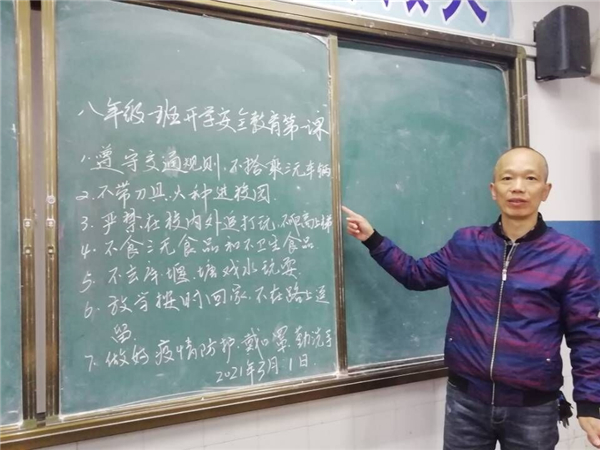 八年级班开学安全教育第一课
1.遵守交通规则,不搭乘三无车辆
2.不带刀具火种进校园
3.严禁在校内外追打玩
4.不食三无食品和不卫生食品
5.不去库、堰、塘戏水玩耍
6.放学按时回家,不在路上逗
留.
7.做好疫情防护.戴口罩勤洗手
2021年3月1日
人